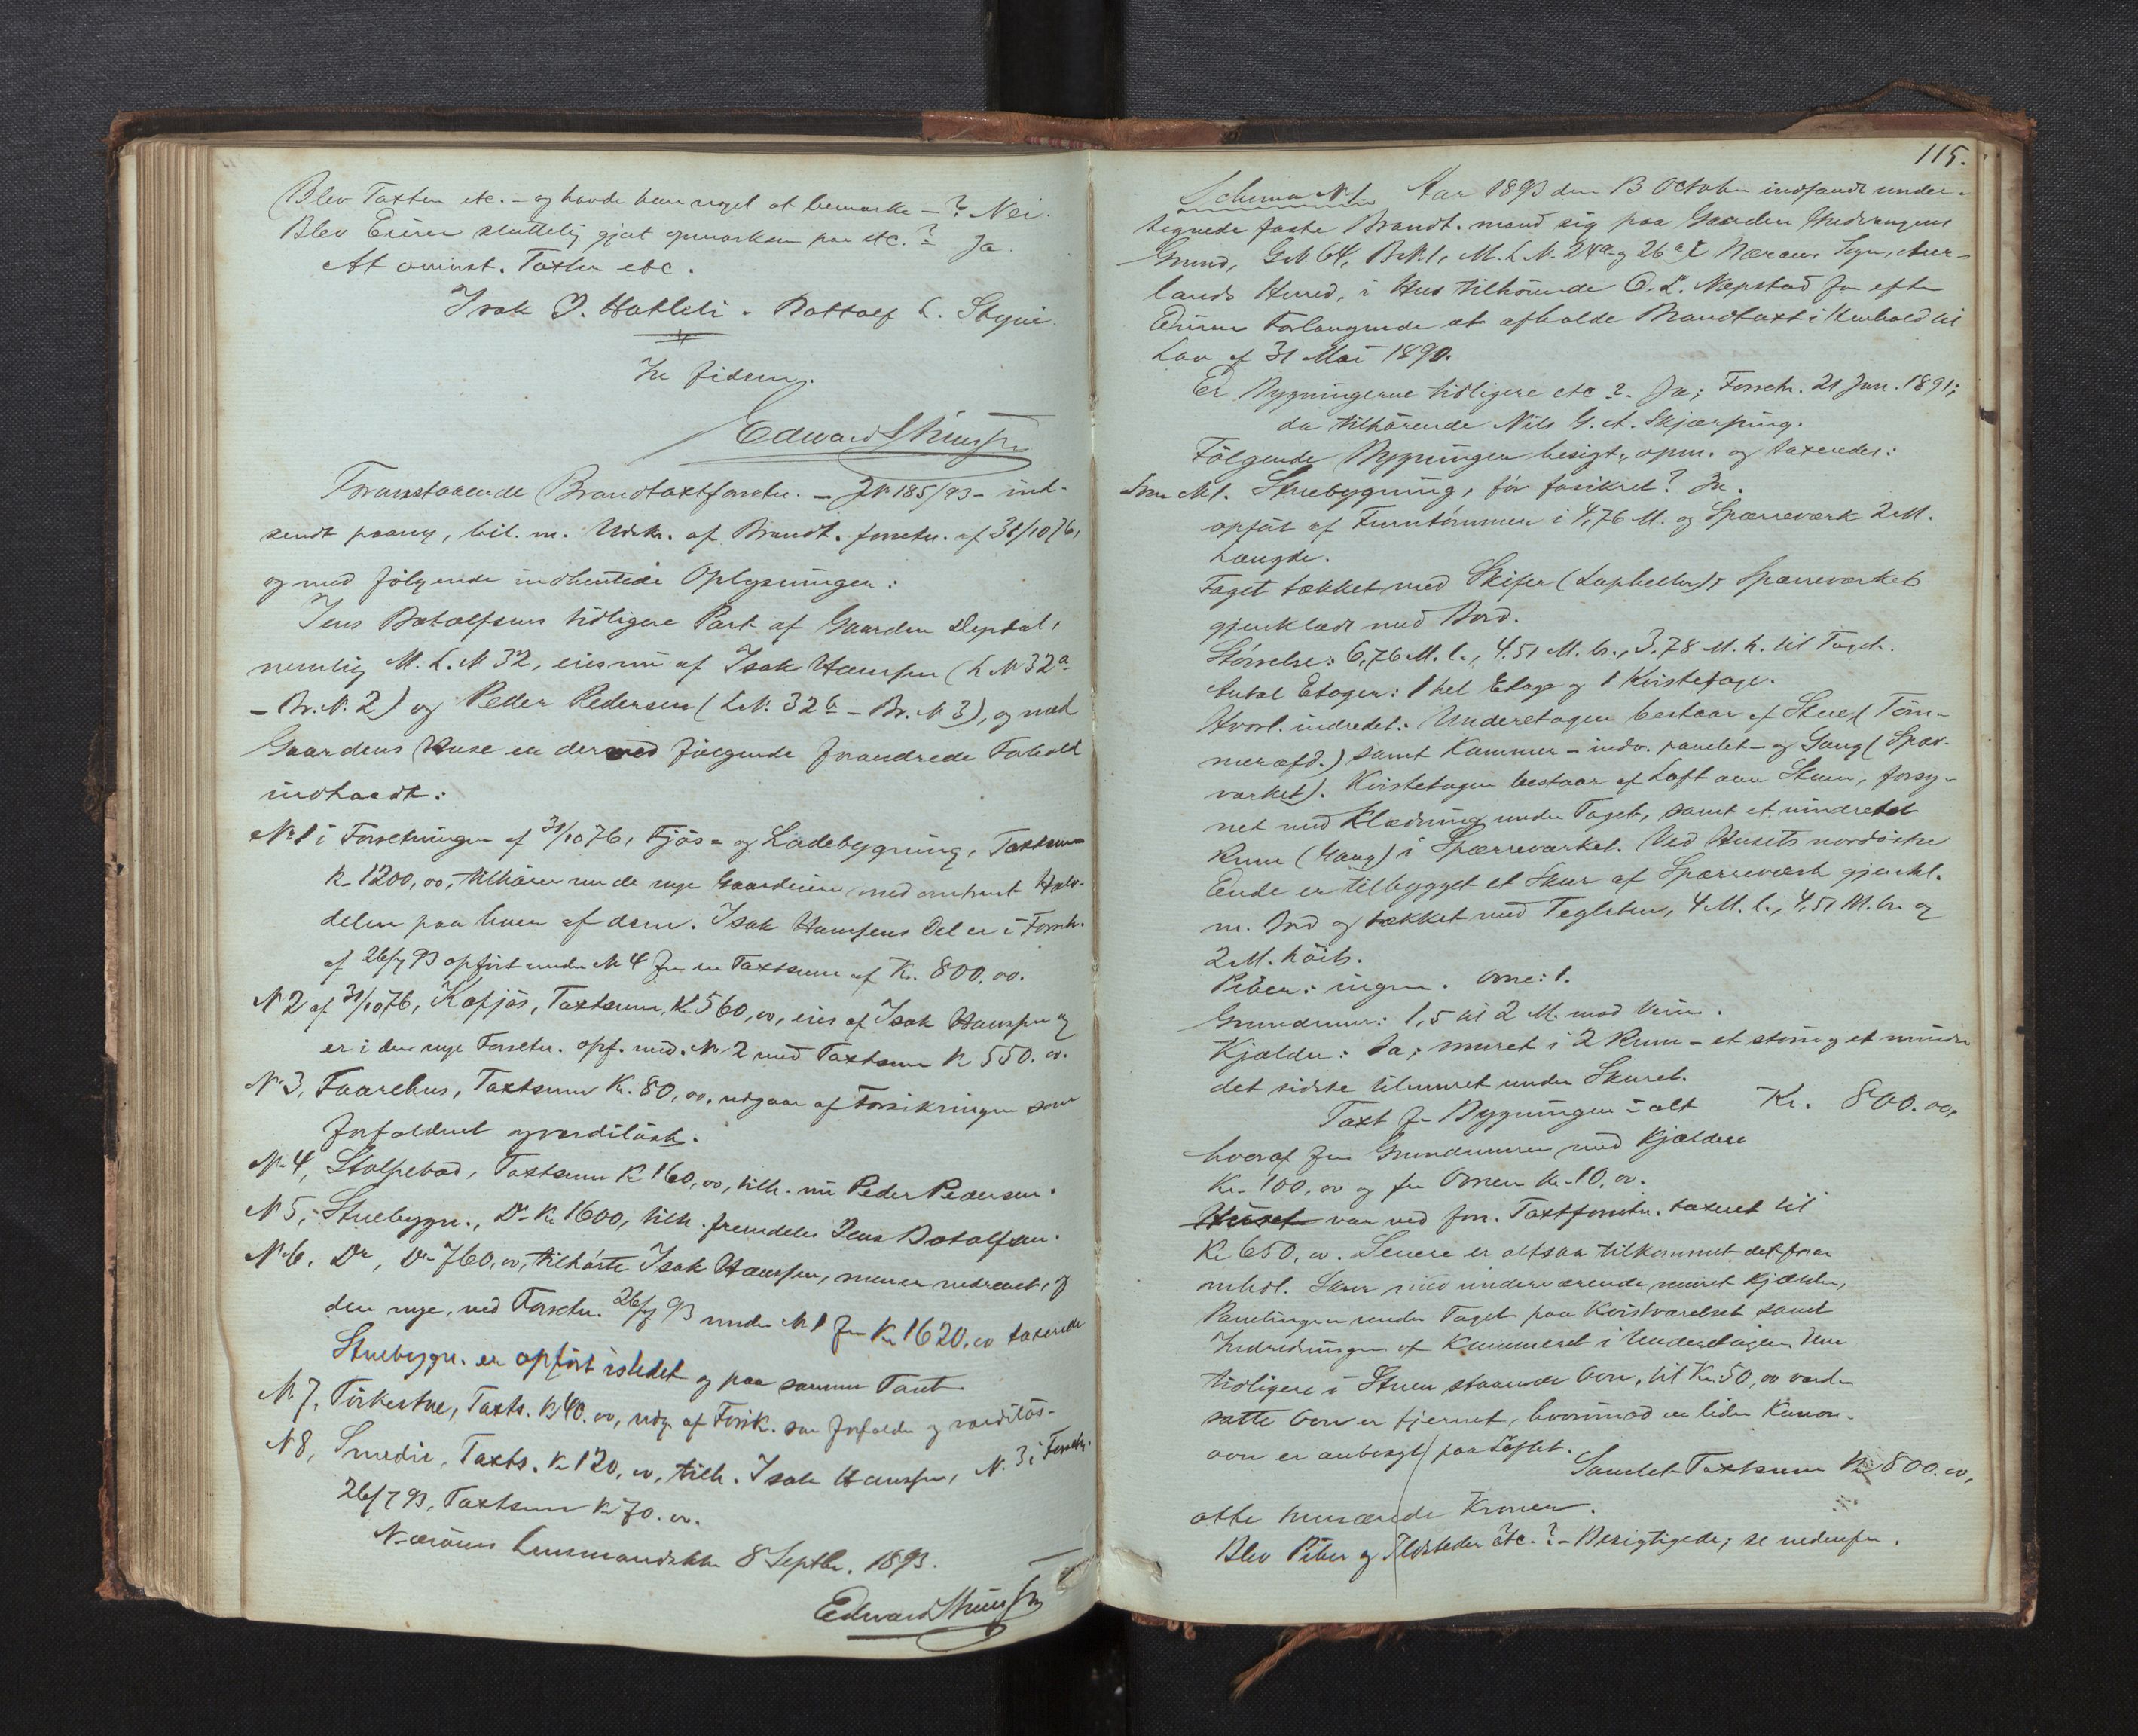 Blev Taxten etc. - og havde han noget at bemærke - ? Nei.
Blev Eieren sluttelig gjort opmærksom paa etc. ? Ja.
At ovenst. Taxter etc.
Isak J. Hatleli. Bottolf L. Stigni.
In fidem.
Edward
Foranstaaende Brandtaxtforretn. - J№ 185/93 - ind-
sendt paany, bil. m. Udskr. af Brandt. forretn. af 31/10 76,
og med følgende indhentede Oplysninger:
Jens Botolfsens tidligere Part af Gaarden Dyrdal,
nemlig M. L. № 32, eies nu af Isak Hansen (L № 32a
- Br. №. 2) og Peder Pedersen (L.№. 32b - Br. № 3), og med
Gaardens Huse er dermed følgende forandrede Forhold
indtraadt:
№ 1 i Forretningen af 31/10 76, Fjøs- og Ladebygning, Taxtsum
Kr. 1200,00, tilhører nu de nye Gaardeiere med omtrent Halv-
delen paa hver af dem. Isak Hansens Del er i Forretn.
af 26/7 93 opført under № 4 for en Taxtsum af Kr. 800.00.
№ 2 af 31/10 76, Kofjøs, Taxtsum Kr 560,00, eies af Isak Hansen og
er i den nye Forretn. opf. und. № 2 med Taxtsum Kr 550.00.
№ 3, Faarehus, Taxtsum Kr. 80,00, udgaar af Forsikringen som
forfaldent og værdiløst.
№ 4, Stolpebod, Taxtsum Kr 160,00, tilh. nu Peder Pedersen.
№ 5, Stuebygn., Do Kr 1600, tilh. fremdeles Jens Botolfsen.
№ 6. Do, Do 760,00, tilhørte Isak Hansen, men er nedrevet, og
den nye, ved Forretn. 26/7 93 under № 1 for Kr 1620,00 taxerede
Stuebygn. er opført istedet og paa samme Tomt.
№ 7. Tørkestue, Taxts. Kr 40.00, udg. af Forsik. som forfalden og værdiløs.
№ 8, Smedie, Taxts. Kr 120,00, tilh. Isak Hansen, №. 3 i Forretn.
26/7 93, Taxtsum Kr 70.00.
Nærøens Lensmandskr. 8 Septbr. 1893.
Edward
115.
Schema № 1. Aar 1893 den 13 October indfandt under-
tegnede faste Brandt.mænd sig paa Gaarden
Grund, G.№. 64, B.№. 1, M. L. №. 24a og 26a i Nærøens Sogn, Aur-
lands Herred, i Hus tilhørende O. L. Nepstad for efter
Eierens Forlangende at afholde Brandtaxt i Henhold til
Lov af 31 Mai 1890.
Er Bygningerne tidligere etc ?. Ja; Forretn. 21 Jan. 1891;
da tilhørende Nils G. A. Skjærping.
Følgende Bygninger besigt., opm. og taxeredes:
Som № 1. Stuebygning, før forsikret? Ja.
opført af Furutømmer i 4,76 M. og Spærreværk 2 M.
Længde.
Taget tækket med Skifer (Lapheller); Spærreværket
gjenklædt med Bord.
Størrelse: 6,76 M. l., 4.51 M. br., 3.78 M. h. til Taget.
Antal Etager: 1 hel Etage og 1 Kvistetage.
Hvorl. indredet: Underetagen bestaar af Stue (Tøm-
meræfd.) samt Kammer - indv. panelet - og Gang (Spær-
værket). Kvistetagen bestaar af Loft over Stuen, forsy-
net med Klædning under Taget, samt et uindredet
Rum (Gang) i Spærreværket. Ved Husets nordøstre
Ende er tilbygget et Skur af Spærreværk gjenkl.
m. Bord og tækket med Teglsten, 4 M. l., 4,51 M. br. og
2 M. høit.
Piber: ingen. Ovne: 1.
Grundmur: 1,5 til 2 M. mod Veien.
Kjælder: Ja; muret i 2 Rum - et større og et mindre
det sidste tilmuret under Skuret.
Taxt for Bygningen i alt Kr. 800.00,
hvoraf for Grundmuren med Kjældere
Kr. 100,00 og for Ovnen Kr. 10,00.
Huset var ved forr. Taxtforretn. taxeret til
Kr 650,00. Senere er altsaa tilkommet det foran
omhdl. Skur med underværende muret Kjælder,
Panelingen under Taget paa Kvistværelset samt
Indredningen af Kammeret i Underetagen. Den
tidligere i Stuen staaende Ovn, til Kr. 50,00 værd-
satte Ovn er fjernet, hvorimod en liden Kanon-
ovn er anbragt paa Loftet.
Samlet Taxtsum Kr 800.00,
otte hundrede Kroner.
Blev Piber og Ildsteder etc. ? - Besigtigede; se nedenfor.